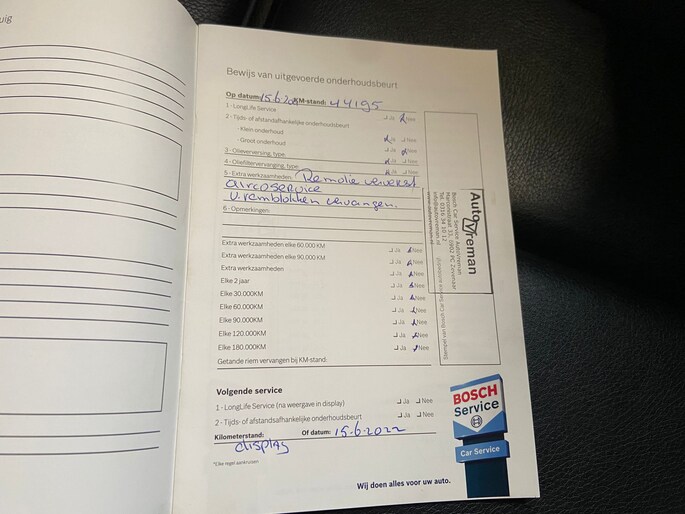 uig
Bewijs van uitgevoerde onderhoudsbeurt
Op datum: 15.6.20 KM-stand: 44195
1 - LongLife Service Ja Nee
2 - Tijds- of afstandsafhankelijke onderhoudsbeurt
- Klein onderhoud Ja Nee
- Groot onderhoud Ja Nee
3 - Olieverversing, type: Ja Nee
4 - Oliefiltervervanging, type: Ja Nee
5 - Extra werkzaamheden: Remolie ververst
aircoservice
V. remblokken vervangen.
6 - Opmerkingen:
Extra werkzaamheden elke 60.000 KM Ja Nee
Extra werkzaamheden elke 90.000 KM Ja Nee
Extra werkzaamheden Ja Nee
Elke 2 jaar Ja Nee
Elke 30.000KM Ja Nee
Elke 60.000KM Ja Nee
Elke 90.000KM Ja Nee
Elke 120.000KM Ja Nee
Elke 180.000KM Ja Nee
Getande riem vervangen bij KM-stand:
AutoVreman
Bosch Car Service AutoVreman
Tel. 0316 34 10 12
info@autovreman.nl
www.autovreman.nl
Stempel van Bosch Car Service autobedrijf
Volgende service
1 - LongLife Service (na weergave in display) Ja Nee
2 - Tijds- of afstandsafhankelijke onderhoudsbeurt Ja Nee
Kilometerstand: Of datum: 15-6-2022
display
*Elke regel aankruisen
BOSCH
Service
Car Service
Wij doen alles voor uw auto.